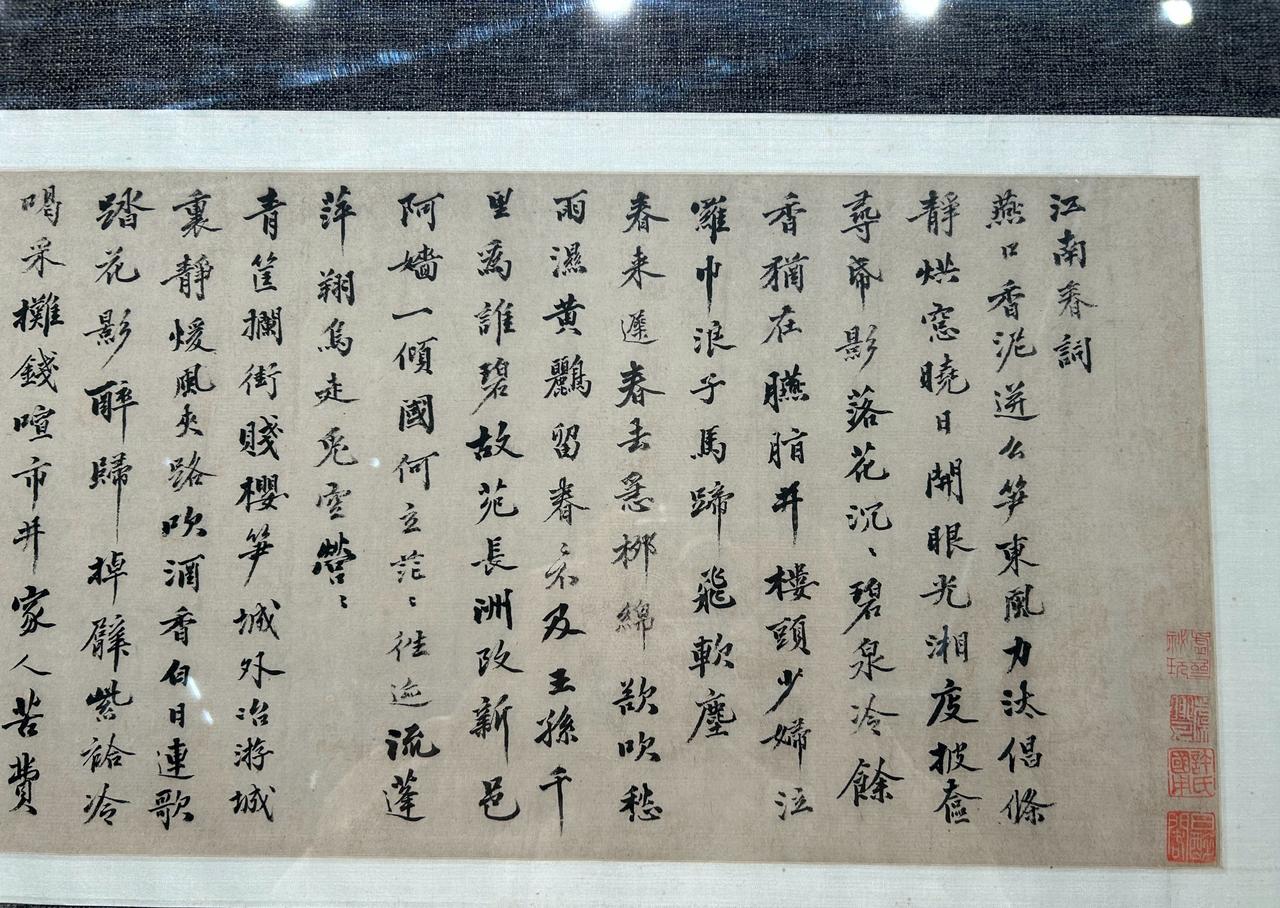 江南春詞
燕口香泥迸幺笋東風力汰倡條
靜烘窓曉日開眼光湘庋披奩
尋帟影落花沉〻碧泉冷餘
香猶在臙脂井樓頭少婦泣
羅巾浪子馬蹄飛軟塵
春来遲春去急柳綿欲吹愁
雨濕黃鸝留春〻不及王孫千
里爲誰碧故苑長洲改新邑
阿嬙一傾國何立茫〻往迹流蓬
萍翔烏走兎空營〻
青筐攔街賤櫻笋城外冶游城
裏靜煖風夾路吹酒香白日連歌
踏花影醉歸掉臂紫袷冷
喝采攤錢喧市井家人苦費